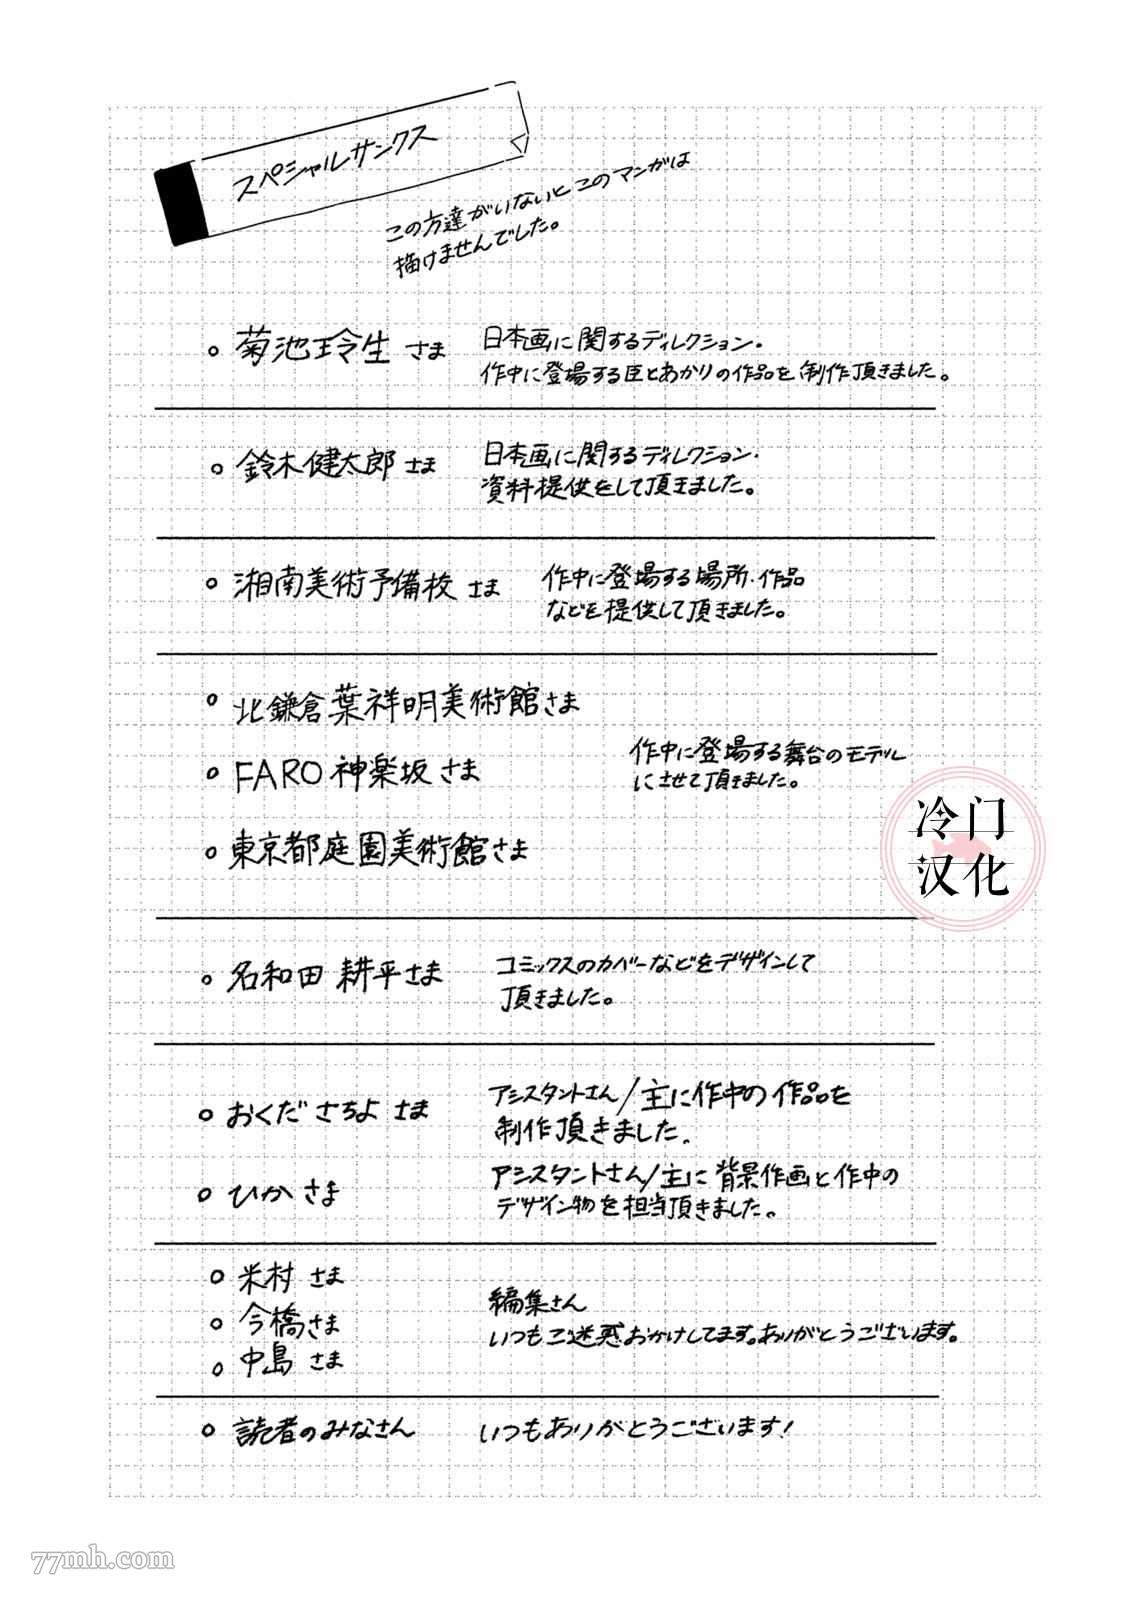 スペシャルサンクス
この方達がいないとこのマンガは
描けませんでした。
菊池玲生 さま
日本画に関するディレクション・
作中に登場する臣とあかりの作品を制作頂きました。
鈴木健太郎 さま
日本画に関するディレクション・
資料提供をして頂きました。
湘南美術予備校 さま
作中に登場する場所・作品
などを提供して頂きました。
北鎌倉葉祥明美術館さま
FARO神楽坂さま
東京都庭園美術館さま
作中に登場する舞台のモデル
にさせて頂きました。
冷门
汉化
名和田 耕平さま
コミックスのカバーなどをデザインして
頂きました。
おくだ さちよ さま
アシスタントさん/主に作中の作品を
制作頂きました。
ひか さま
アシスタントさん/主に背景作画と作中の
デザイン物を担当頂きました。
米村 さま
今橋さま
中島 さま
編集さん
いつもご迷惑おかけしてます。ありがとうございます。
読者のみなさん
いつもありがとうございます!
77mh.com